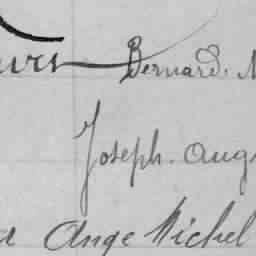 Bernard. M
Joseph. aug
Ange Michel